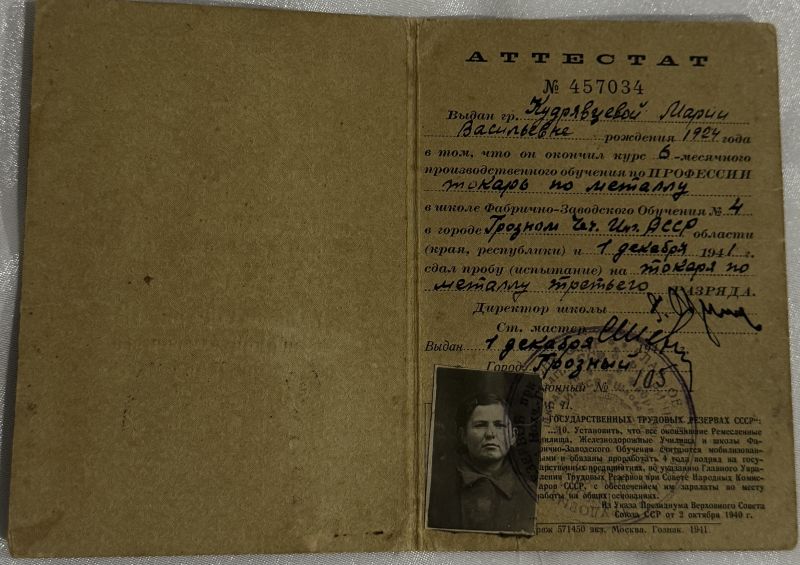 АТТЕСТАТ
№ 457034
Выдан гр. Кудрявцевой Марии
Васильевне рождения 1924 года
в том, что он окончил курс 6-месячного
производственного обучения по ПРОФЕССИИ
токарь по металлу
в школе Фабрично-Заводского Обучения № 4
в городе Грозном Чеч. Инг. АССР области
(края, республики) и 1 декабря 1941 г.
сдал пробу (испытание) на токаря по
металлу третьего РАЗРЯДА.
Директор школы
Ст. мастер
Выдан 1 декабря 194
Город Грозный
№ 105
ГОСУДАРСТВЕННЫХ ТРУДОВЫХ РЕЗЕРВАХ СССР":
10. Установить, что все окончившие Ремесленные
училища, Железнодорожные Училища и школы Фа-
брично-Заводского Обучения считаются мобилизован-
ными и обязаны проработать 4 года подряд на госу-
дарственных предприятиях, по указанию Главного Упра-
вления Трудовых Резервов при Совете Народных Комис-
саров СССР, с обеспечением им зарплаты по месту
работы на общих основаниях.
Из Указа Президиума Верховного Совета
Союза ССР от 2 октября 1940 г.
571450 экз. Москва. Гознак. 1941.